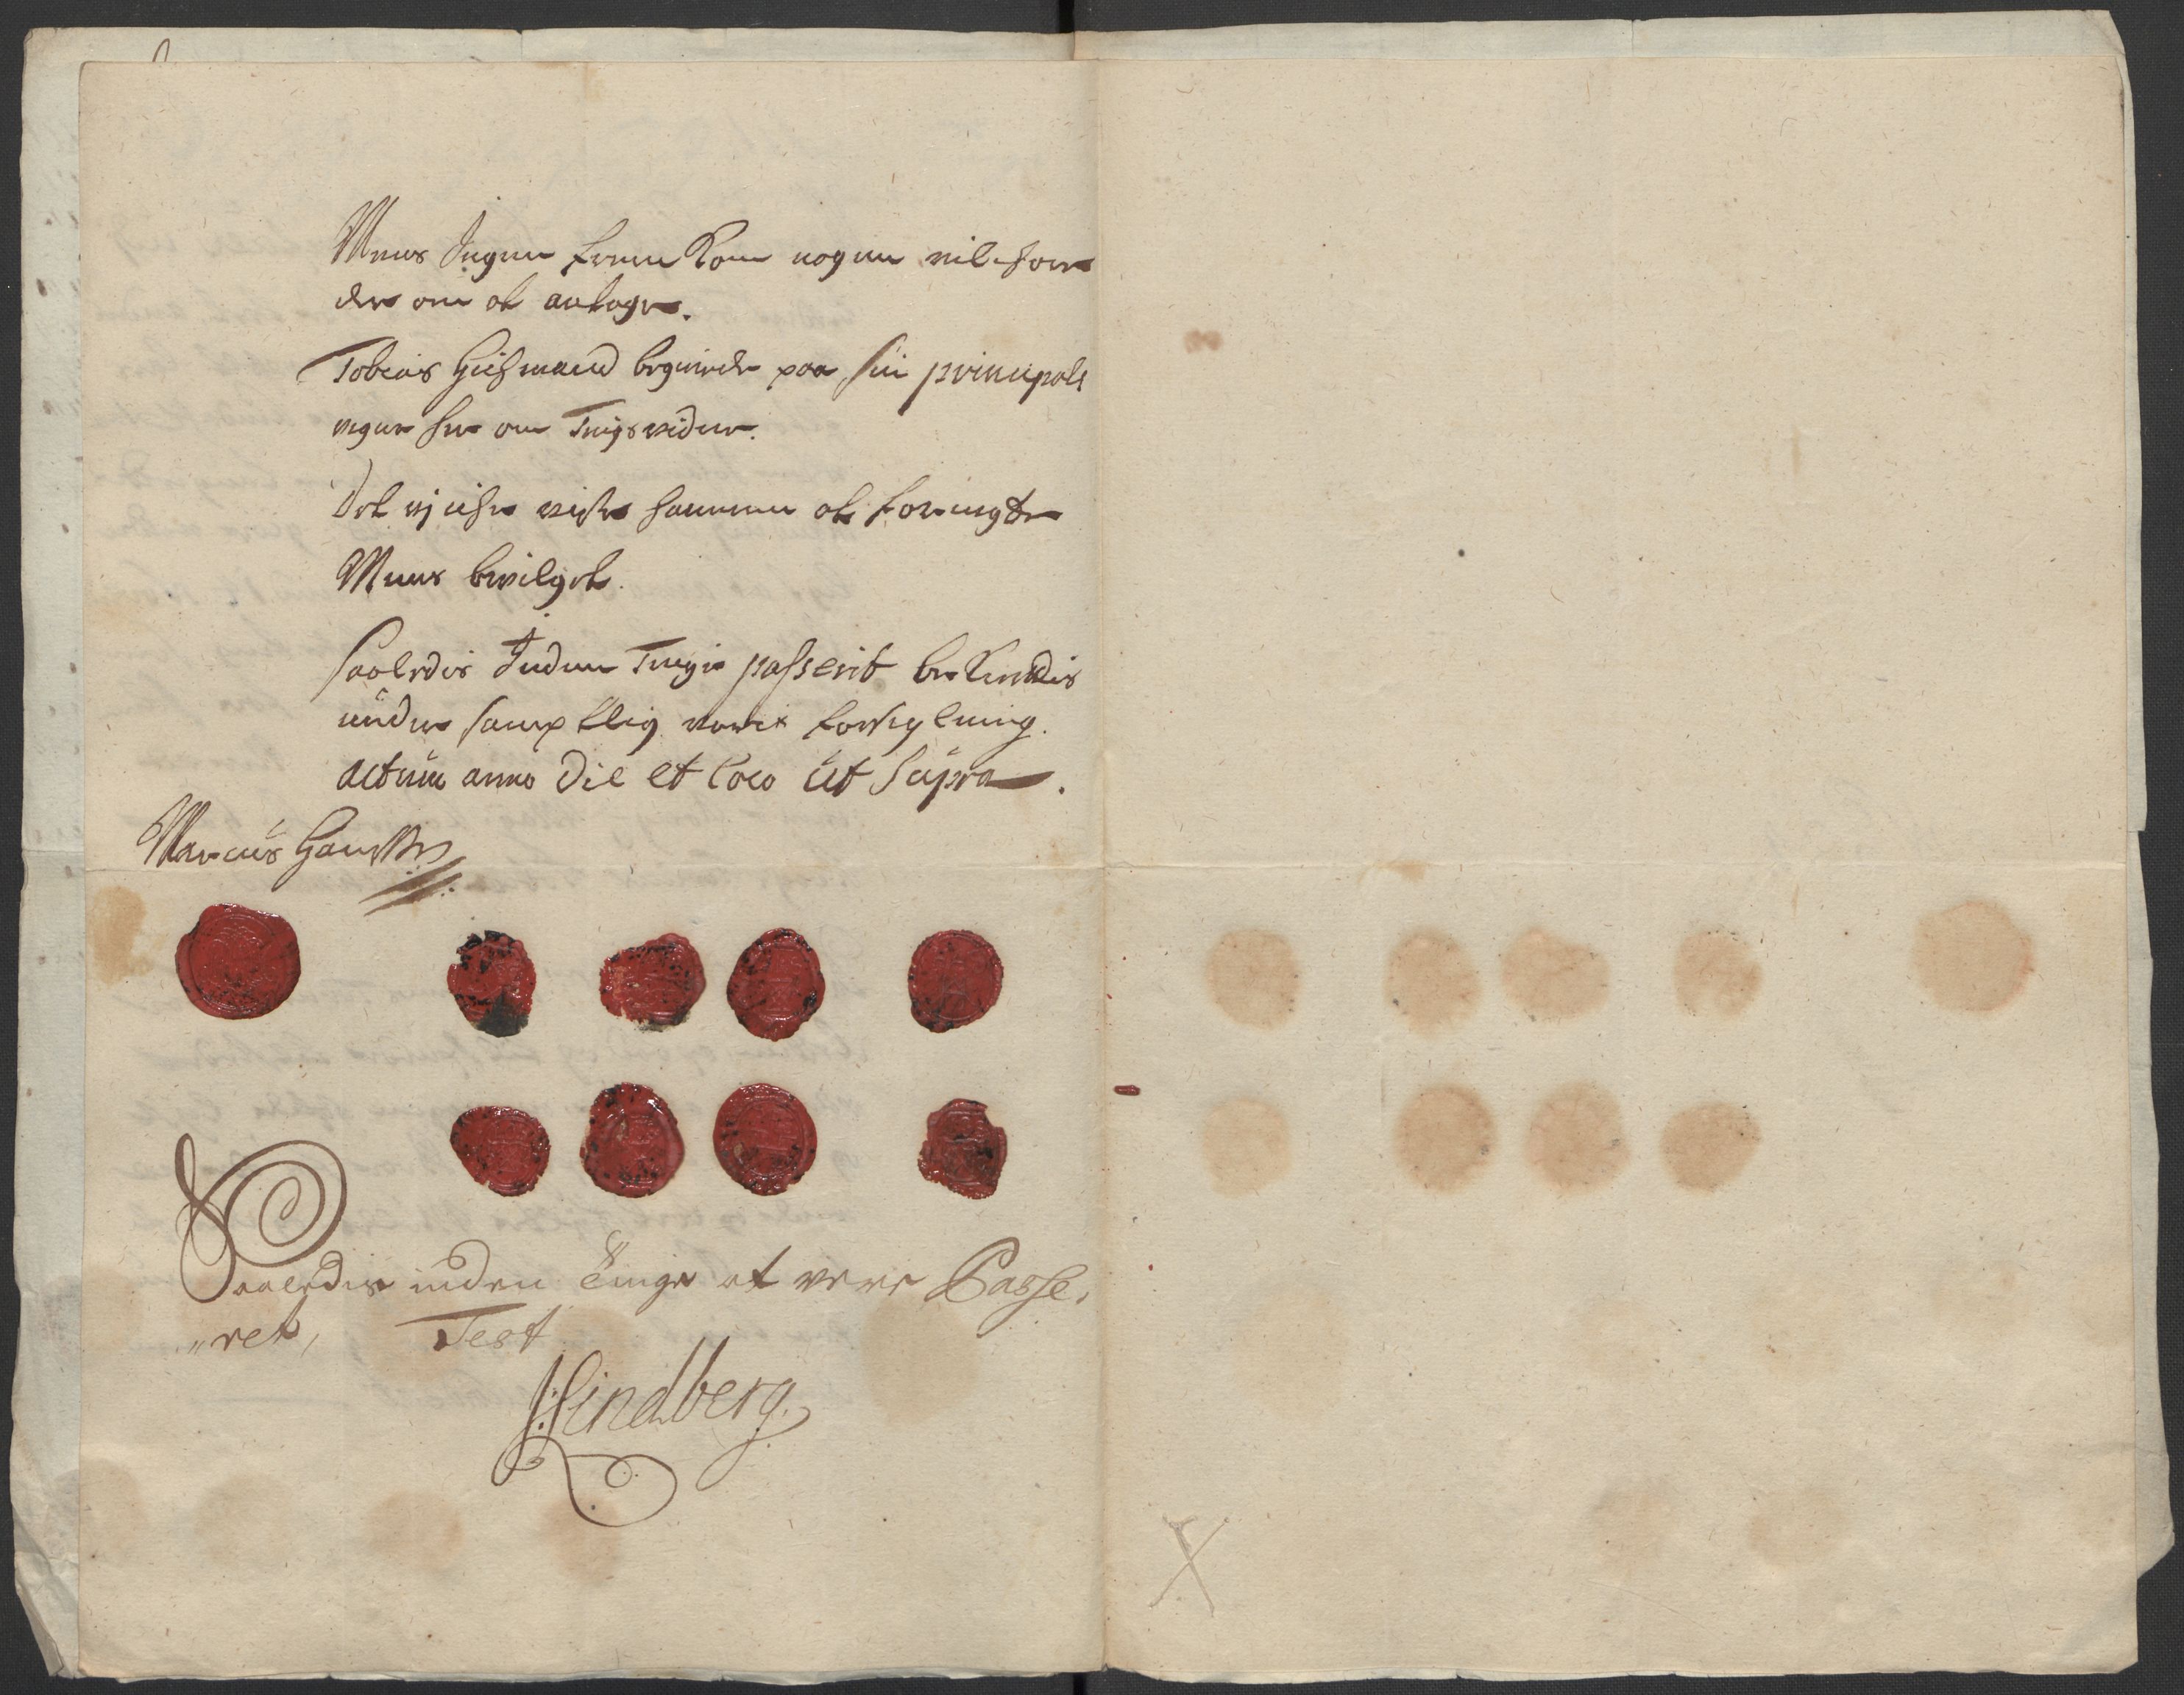 Mens Ingen frem kom nogen vilchor
der om at antage.
Tobias Hiesmand begierede paa sin principals
vegne her om Tingsvidne.
Det ej uden samme at
Mens bevilget.
Saaledis Inden Tinge passerit be kendis
under samptlig voris forseyling.
Actum anno Die et loco ut Supra.
Marcus Hanssen
Saaledis inden Tinge at vere Passe,
"ret, Test
J: Lindberg.